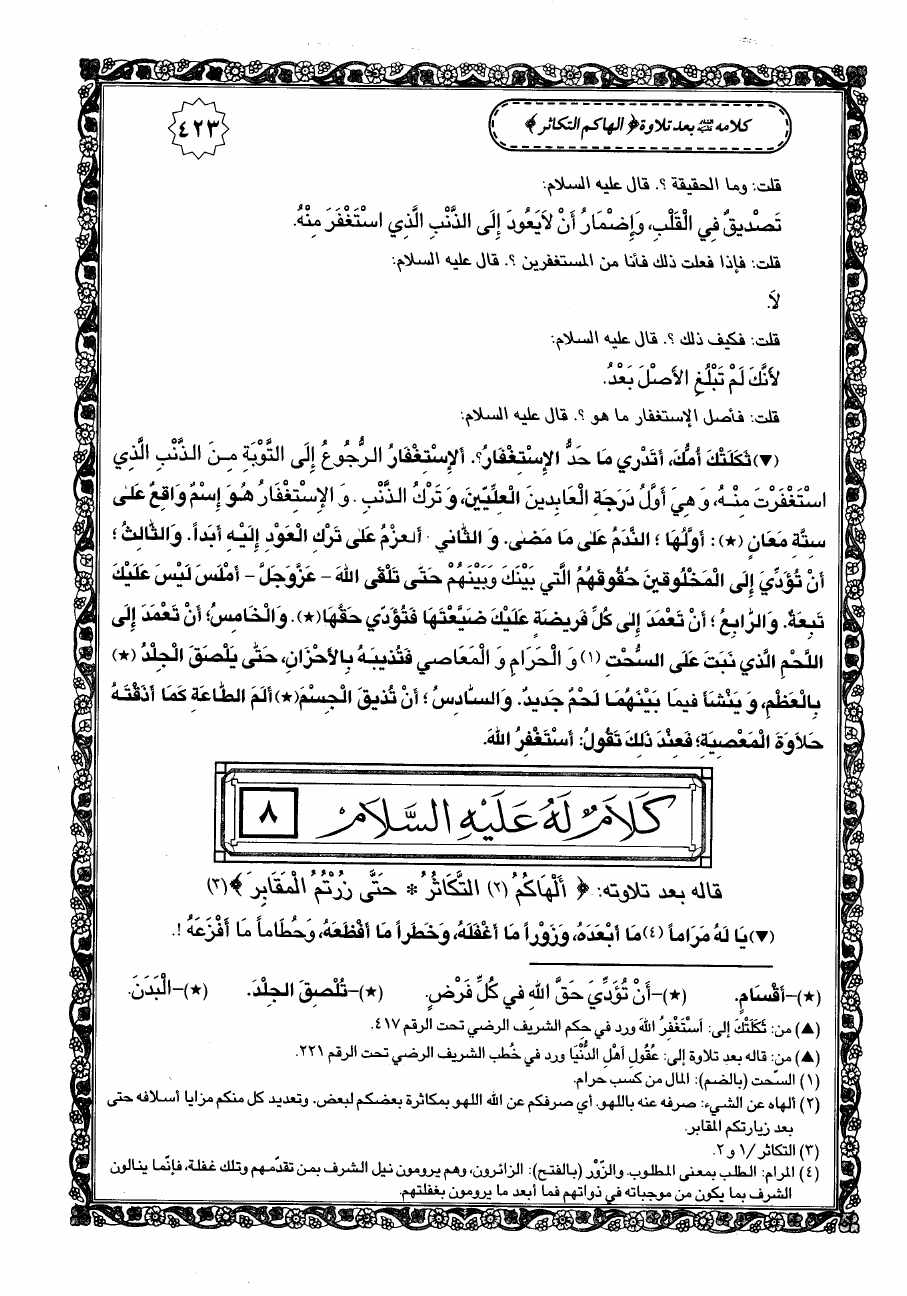 كلامه عليه السلام بعد تلاوة ﴿ الهاكم التكاثر ﴾
٤٢٣
قلت: وما الحقيقة ؟. قال عليه السلام:
تَصْديقٌ فِي الْقَلْبِ، وَإِضْمَارُ أَنْ لاَيَعُودَ إِلَى الذَّنْبِ الَّذِي اسْتَغْفَرَ مِنْهُ.
قلت: فإذا فعلت ذلك فأنا من المستغفرين ؟. قال عليه السلام:
لاَ.
قلت: فكيف ذلك ؟. قال عليه السلام:
لأَنَّكَ لَمْ تَبْلُغِ الأَصْلَ بَعْدُ.
قلت: فأصل الإستغفار ما هو ؟. قال عليه السلام:
(▼) ثَكَلَتْكَ أُمُّكَ، أَتَدْري مَا حَدُّ الإِسْتِغْفَارُ؟. ألإِسْتِغْفَارُ الرُّجُوعُ إِلَى التَّوْبَةِ مِنَ الذَّنْبِ الَّذي
اسْتَغْفَرْتَ مِنْهُ، وَ هِيَ أَوَّلُ دَرَجَةِ الْعَابِدينَ الْعِلِّيّينَ، وَ تَرْكُ الذَّنْبِ. وَ الإِسْتِغْفَارُ هُوَ إِسْمٌ وَاقِعٌ عَلى
سِتَّةِ مَعَانٍ (★): أَوَّلُهَا ؛ النَّدَمُ عَلى مَا مَضى. وَ الثَّاني ؛ ألعزْمُ عَلى تَرْكِ الْعَوْدِ إِلَيْهِ أَبَداً. وَالثَّالِثُ ؛
أَنْ تُؤَدِّيَ إِلَى الْمَخْلُوقينَ حُقُوقَهُمُ الَّتي بَيْنَكَ وَبَيْنَهُمْ حَتّى تَلْقَى اللهَ - عَزَّوَجَلَّ - أَمْلَسَ لَيْسَ عَلَيْكَ
تَبِعَةٌ. وَالرَّابِعُ ؛ أَنْ تَعْمَدَ إِلى كُلِّ فَريضَةٍ عَلَيْكَ ضَيَّعْتَهَا فَتُؤَدِّيَ حَقَّهَا(★). وَالْخَامِسُ؛ أَنْ تَعْمَدَ إِلَى
اللَّحْمِ الَّذي نَبَتَ عَلَى السُّحْتِ (١) وَ الْحَرَامِ وَ الْمَعَاصي فَتُذيبَهُ بِالأَحْزَانِ، حَتّى يَلْصَقَ الْجِلْدُ (★)
بِالْعَظْمِ، وَ يَنْشَأَ فيمَا بَيْنَهُمَا لَحْمٌ جَديدٌ. وَالسَّادِسُ ؛ أَنْ تُذيقَ الْجِسْمَ(★) أَلَمَ الطَّاعَةِ كَمَا أَذَقْتَهُ
حَلاَوَةَ الْمَعْصِيَةِ؛ فَعِنْدَ ذلِكَ تَقُولُ: أَسْتَغْفِرُ اللهَ.
كَلَامٌ لَهُ عَلَيْهِ السَّلَامُ
٨
قاله بعد تلاوته: ﴿ أَلْهَاكُمُ (٢) التَّكَاثُرُ * حَتَّى زُرْتُمُ الْمَقَابِرَ ﴾(٣)
(▼) يَا لَهُ مَرَاماً (٤) مَا أَبْعَدَهُ، وَزَوْراً مَا أَغْفَلَهُ، وَخَطَراً مَا أَفْظَعَهُ، وَحُطَاماً مَا أَفْزَعَهُ !.
(★)-أَقْسَامٍ. (★)-أَنْ تُؤَدِّيَ حَقَّ اللهِ في كُلِّ فَرْضٍ. (★)-تُلْصِقَ الجِلْدَ. (★)-الْبَدَنَ.
(▲) من: ثَكَلَتْكَ إلى: أَسْتَغْفِرُ اللهَ ورد في حكم الشريف الرضي تحت الرقم ٤١٧.
(▲) من: قاله بعد تلاوة إلى: عُقُولِ أَهْلِ الدُّنْيَا ورد في خُطب الشريف الرضي تحت الرقم ٢٢١.
(١) السّحت (بالضم): المال من كسب حرام.
(٢) ألهاه عن الشيء: صرفه عنه باللهو. أي صرفكم عن الله اللهو بمكاثرة بعضكم لبعض. وتعديد كل منكم مزايا أسلافه حتى
بعد زيارتكم المقابر.
(٣) التكاثر /١ و ٢.
(٤) المرام: الطلب بمعنى المطلوب. والزّوْر (بالفتح): الزائرون، وهم يرومون نيل الشرف بمن تقدّمهم وتلك غفلة، فإنّما ينالون
الشرف بما يكون من موجباته في ذواتهم فما أبعد ما يرومون بغفلتهم.